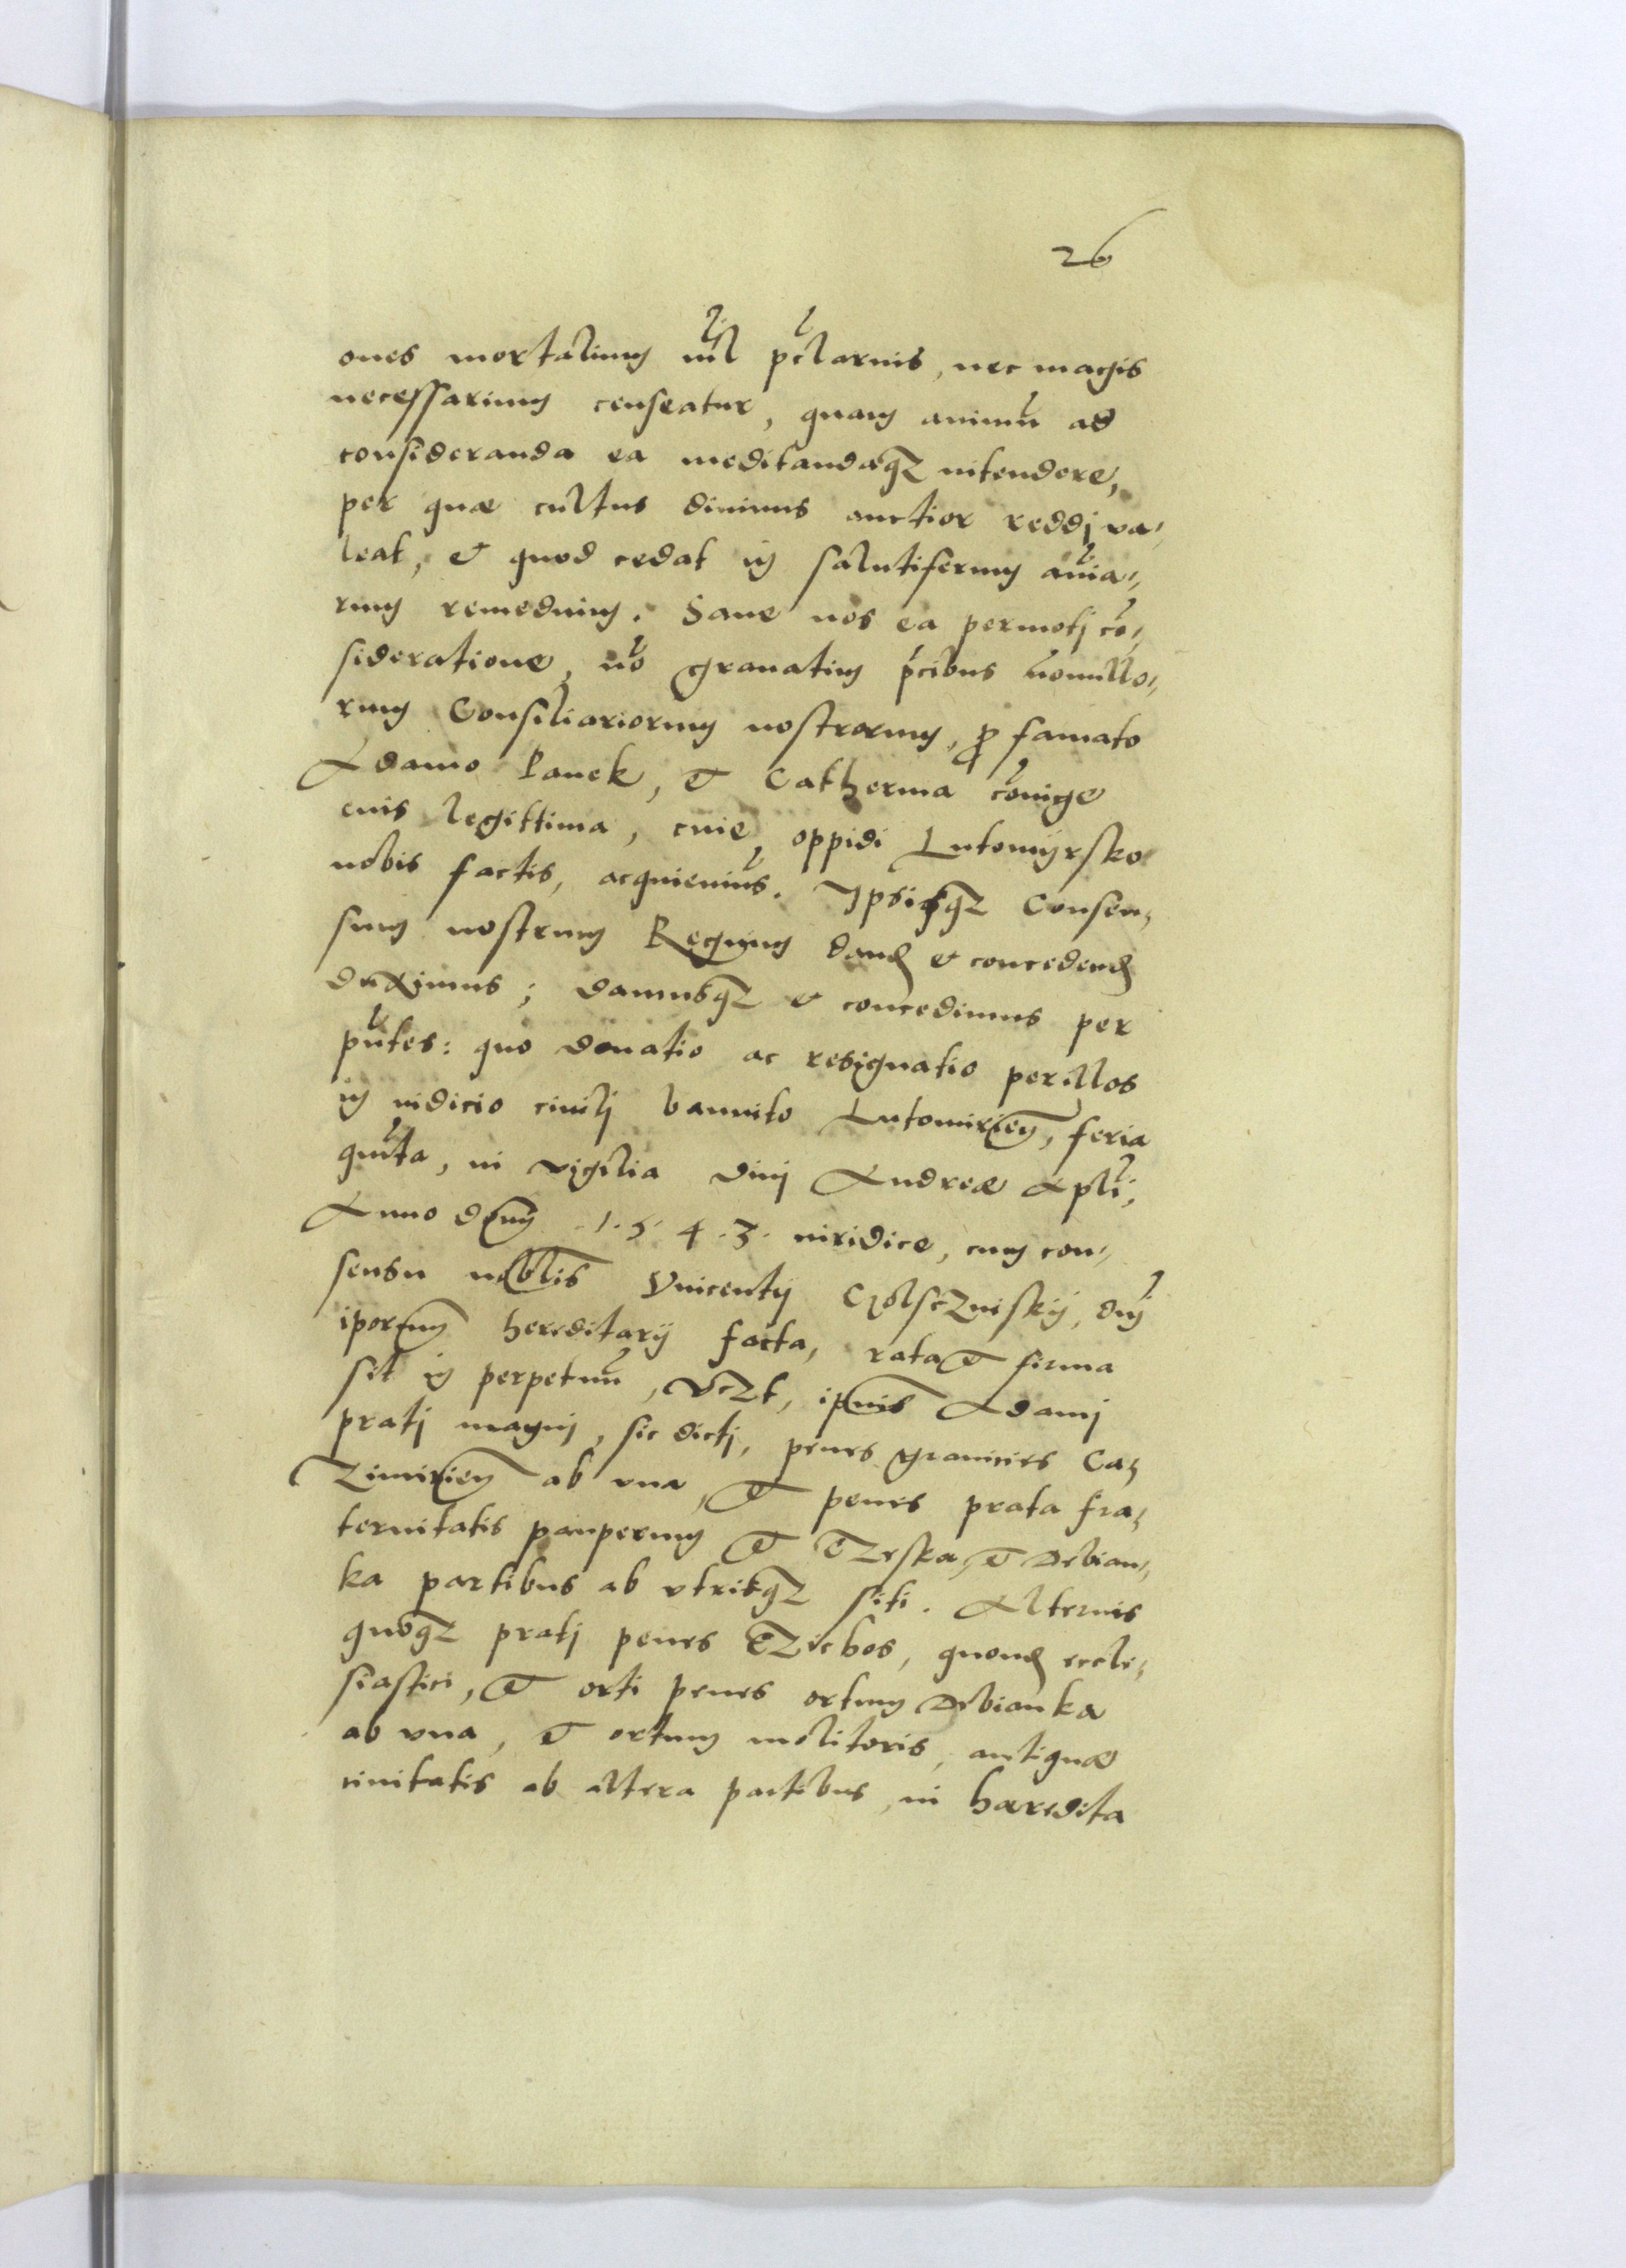 26
ones mortalium nil pclarius, nec magis
necessarium censeatur, quam animu ad
consideranda ea meditandaq3 intendere,
per quæ cultus diuinus auctior reddi va-
leat, et quod cedat in salutiferum aīa-
rum remedium. Sane nos ea permoti co-
sideratione, no grauatim pcibus nonullo-
rum Consiliariorum nostrorum, p famato
Adamo Panek, et Catherina coniuge
eius legittima, ciue oppidi Lutomyrsko
nobis factis, acquieuimus. Ipsisq3 Consen-
sum nostrum Regium dand et concedend
duximus; damusq3 et concedimus per
pntes: quo donatio ac resignatio per illos
in iudicio ciuili bannito Lutomirien, feria
quita, in vigilia diui Andreæ Apli,
Anno dni 1.5.4.3. iuridice, cum con-
sensu nobilis Vincentij dni
iporum hereditarij facta, rata et firma
sit in perpetuu, vc3t, ipius Adami
prati magni, sic dicti, penes granicies Ca-
zimirien ab vna, et penes prata fra-
ternitatis pauperum et Czeska, et Debian-
ka partibus ab vtrisq3 siti. Alterius
quoq3 prati penes quond eccle-
siastici, et orti penes ortum Debianka
ab vna, et ortum molitoris, antiquæ
ciuitatis ab altera partibus, in hæredita